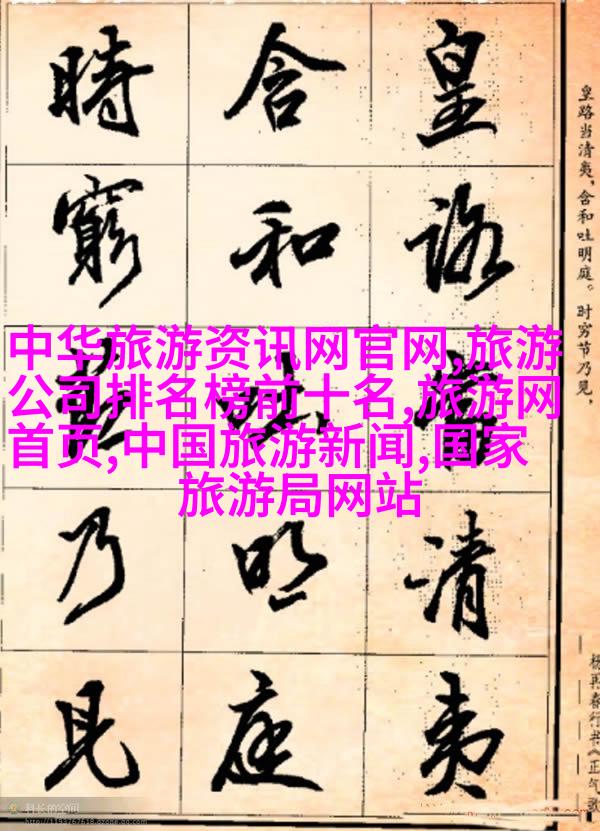 皇路當清夷
含和吐明庭
時窮節乃見
皇路当清夷,含和吐明庭。时穷节乃见,
杨再春行书《正气歌
中华旅游资讯网官网,旅游
公司排名榜前十名,旅游网
首页,中国旅游新闻,国家
旅游局网站
科长的空间